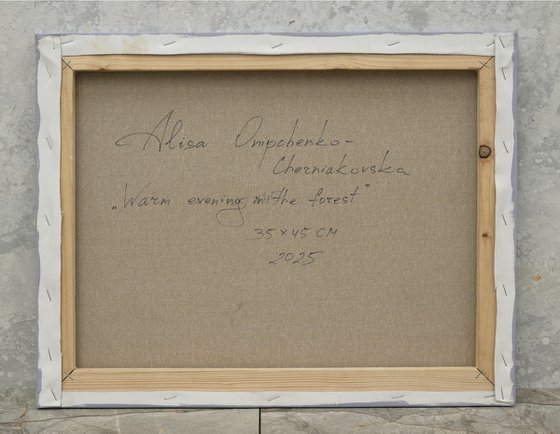 Alisa Onipchenko-
Cherniakovska
„Warm evening in the forest"
35 x 45 CM
2025